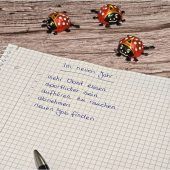 Im neuen Jahr
mehr Obst essen
sportlicher sein
aufhören zu rauchen
abnehmen
neuen Job finden